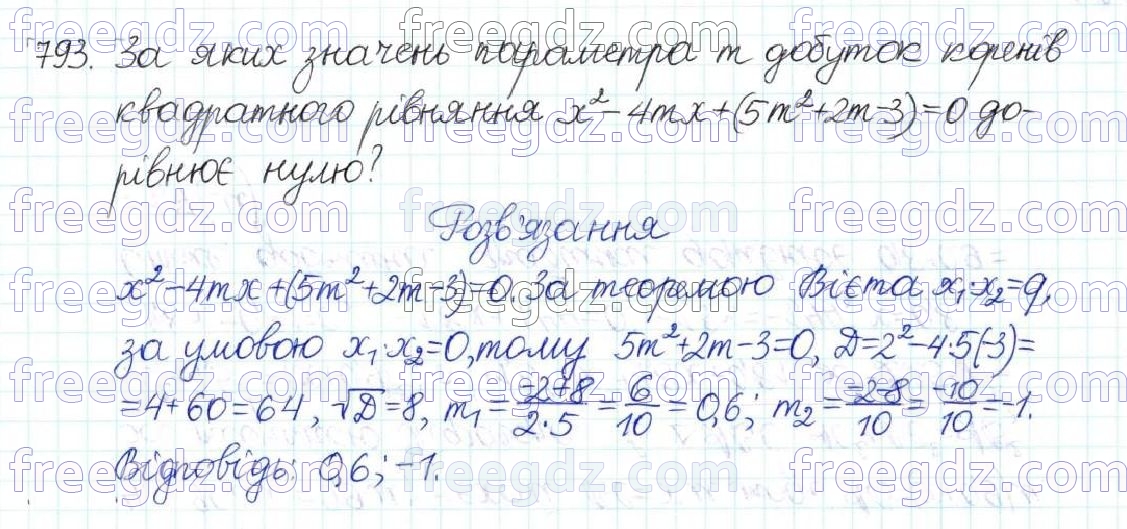 793. За яких значень параметра m добуток коренів
квадратного рівняння x² - 4mx + (5m² + 2m - 3) = 0 до-
рівнює нулю?
Розв'язання
x² - 4mx + (5m² + 2m - 3) = 0. За теоремою Вієта x₁·x₂ = q,
за умовою x₁·x₂ = 0, тому 5m² + 2m - 3 = 0, D = 2² - 4·5(-3) =
= 4 + 60 = 64, √D = 8, m₁ = (-2+8)/(2·5) = 6/10 = 0,6; m₂ = (-2-8)/10 = -10/10 = -1.
Відповідь: 0,6; -1.
freegdz.com